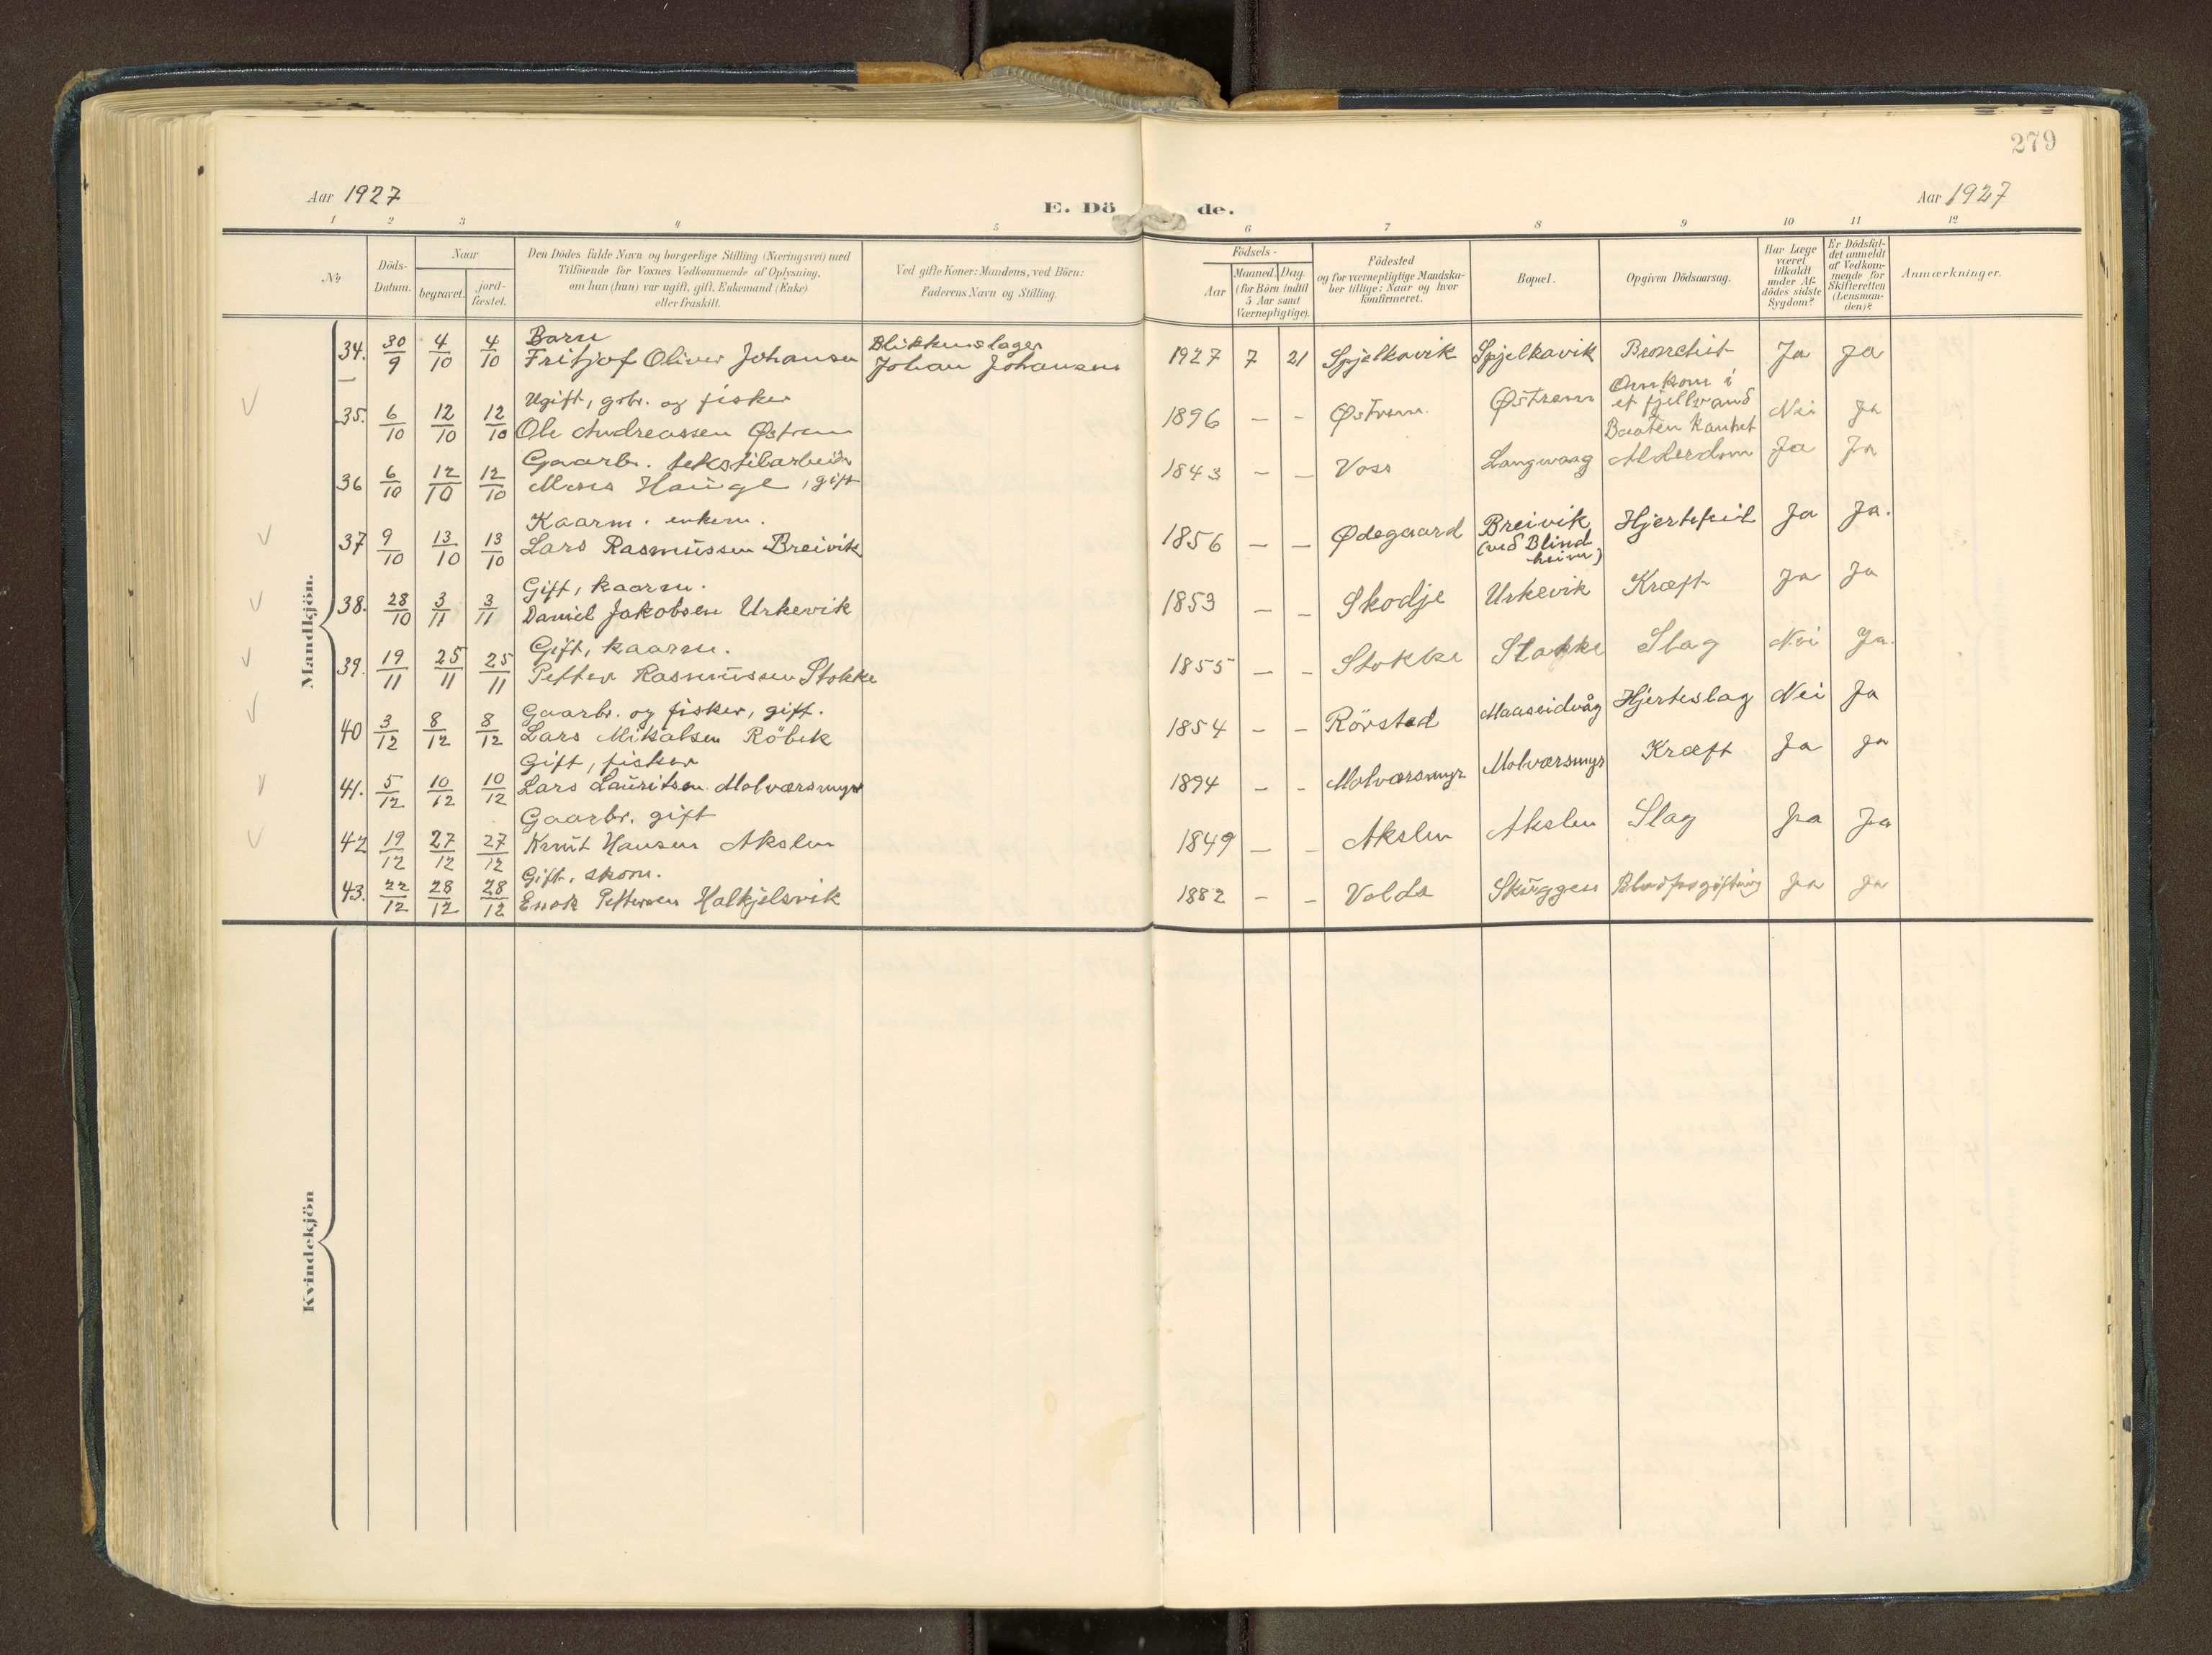 279
Aar 1927
E. Dö de.
Aar 1927
1 2 3 4 5 6 7 8 9 10 11 12
No
Döds-Datum.
Naar
begravet.
jord-fæstet.
Den Dödes fulde Navn og borgerlige Stilling (Næringsvei) med
Tilföiende for Voxnes Vedkommende af Oplysning,
om han (hun) var ugift, gift, Enkemand (Enke)
eller fraskilt.
Ved gifte Koner: Mandens, ved Börn:
Faderens Navn og Stilling.
Födsels-
Aar
Maaned. Dag.
(for Börn indtil
5 Aar samt
Værnepligtige).
Födested
og for værnepligtige Mandska-
ber tillige: Naar og hvor
konfirmeret.
Bopæl.
Opgiven Dödsaarsag.
Har Læge
været
tilkaldt
under Af-
dödes sidste
Sygdom?
Er Dödsfal-
det anmeldt
af Vedkom-
mende for
Skifteretten
(Lensman-
den)?
Anmærkninger.
Mandkjön.
Barn Blikkenslager
34. 30/9 4/10 4/10 Fritjof Oliver Johansen Johan Johansen 1927 7 21 Spjelkavik Spjelkavik Bronchit Ja Ja
Ugift, grbr. og fisker
35. 6/10 12/10 12/10 Ole Andreassen Østrem 1896 — — Østrem Østrem Omkom i
et fjellvand
Baaten kantret Nei Ja
Gaarbr. tekstilarbeider
36 6/10 12/10 12/10 Mons Hauge, gift 1843 — — Voss Langevaag Alderdom Ja Ja
Kaarm. enkem.
37 9/10 13/10 13/10 Lars Rasmussen Breivik 1856 — — Ødegaard Breivik
(ved Blind
heim) Hjertefeil Ja Ja.
Gift, kaarm.
38. 28/10 3/11 3/11 Daniel Jakobsen Urkevik 1853 — — Skodje Urkevik Kræft Ja Ja
Gift, kaarm.
39. 19/11 25/11 25/11 Petter Rasmussen Stokke 1855 — — Stokke Stokke Slag Nei Ja.
Gaarbr. og fisker, gift.
40 3/12 8/12 8/12 Lars Mikalsen Röbek 1854 — — Rörstad Maaseidvåg Hjerteslag Nei Ja
Gift, fisker
41. 5/12 10/12 10/12 Lars Lauritsen Molværsmyr 1894 — — Molværsmyr Molværsmyr Kræft Ja Ja
Gaarbr. gift
42 19/12 27/12 27/12 Knut Hansen Akslen 1849 — — Akslen Akslen Slag Ja Ja
Gift, skom.
43. 22/12 28/12 28/12 Enok Pettersen Halkjelsvik 1882 — — Volda Skuggen Blodforgiftning Ja Ja
Kvindekjön